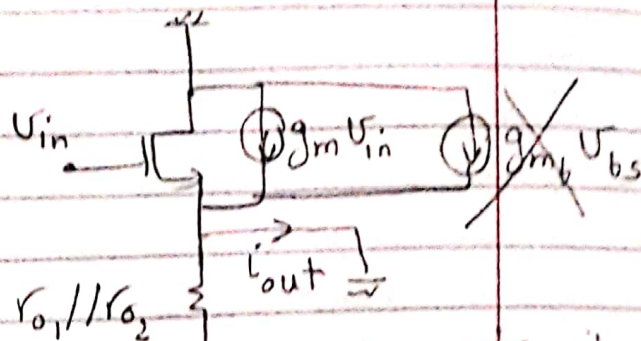 υin
gm υin
gmb υbs
iout
ro1//ro2